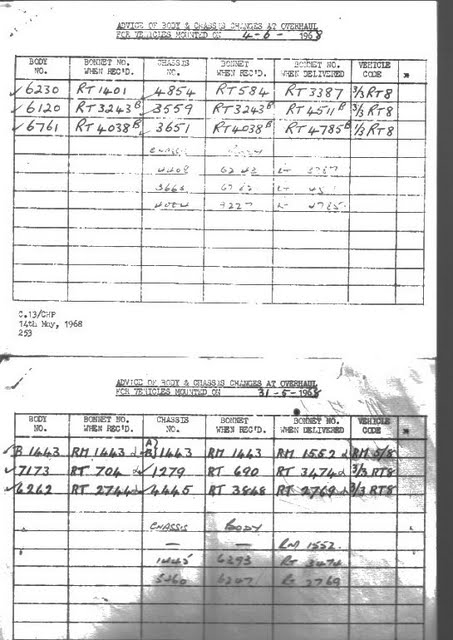 ADVICE OF BODY & CHASSIS CHANGES AT OVERHAUL
FOR VEHICLES MOUNTED ON 4-6- 1968
BODY NO. BONNET NO. WHEN REC'D. CHASSIS NO. BONNET WHEN REC'D. BONNET NO. WHEN DELIVERED VEHICLE CODE *
✓6230 RT 1401 ✓4854 RT 584 RT 3387 3/3 RT8
✓6120 RT 3243 B ✓3559 RT 3243 B RT 4511 B 3/3 RT8
✓6761 RT 4038 B ✓3651 RT 4038 B RT 4785 B 1/3 RT8
C.13/CHP
14th May, 1968
253
ADVICE OF BODY & CHASSIS CHANGES AT OVERHAUL
FOR VEHICLES MOUNTED ON 31-5-1968
BODY NO. BONNET NO. WHEN REC'D. CHASSIS NO. BONNET WHEN REC'D. BONNET NO. WHEN DELIVERED VEHICLE CODE *
✓B1443 RM 1443 1443 RM 1443 RM 1552 RM 5/8
✓7173 RT 704 ✓1279 RT 690 RT 3474 3/3 RT8
✓6262 RT 2744 ✓4445 RT 3848 RT 2769 3/3 RT8
CHASSIS BODY
— — RM 1552.
6293 RT 3474
RT 2769